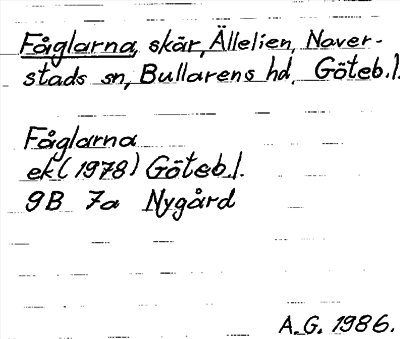 Fåglarna, skär, Ällelien, Naver-
stads sn, Bullarens hd, Göteb.l.
Fåglarna
ek (1978) Göteb.l.
9B 7a Nygård
A.G. 1986.